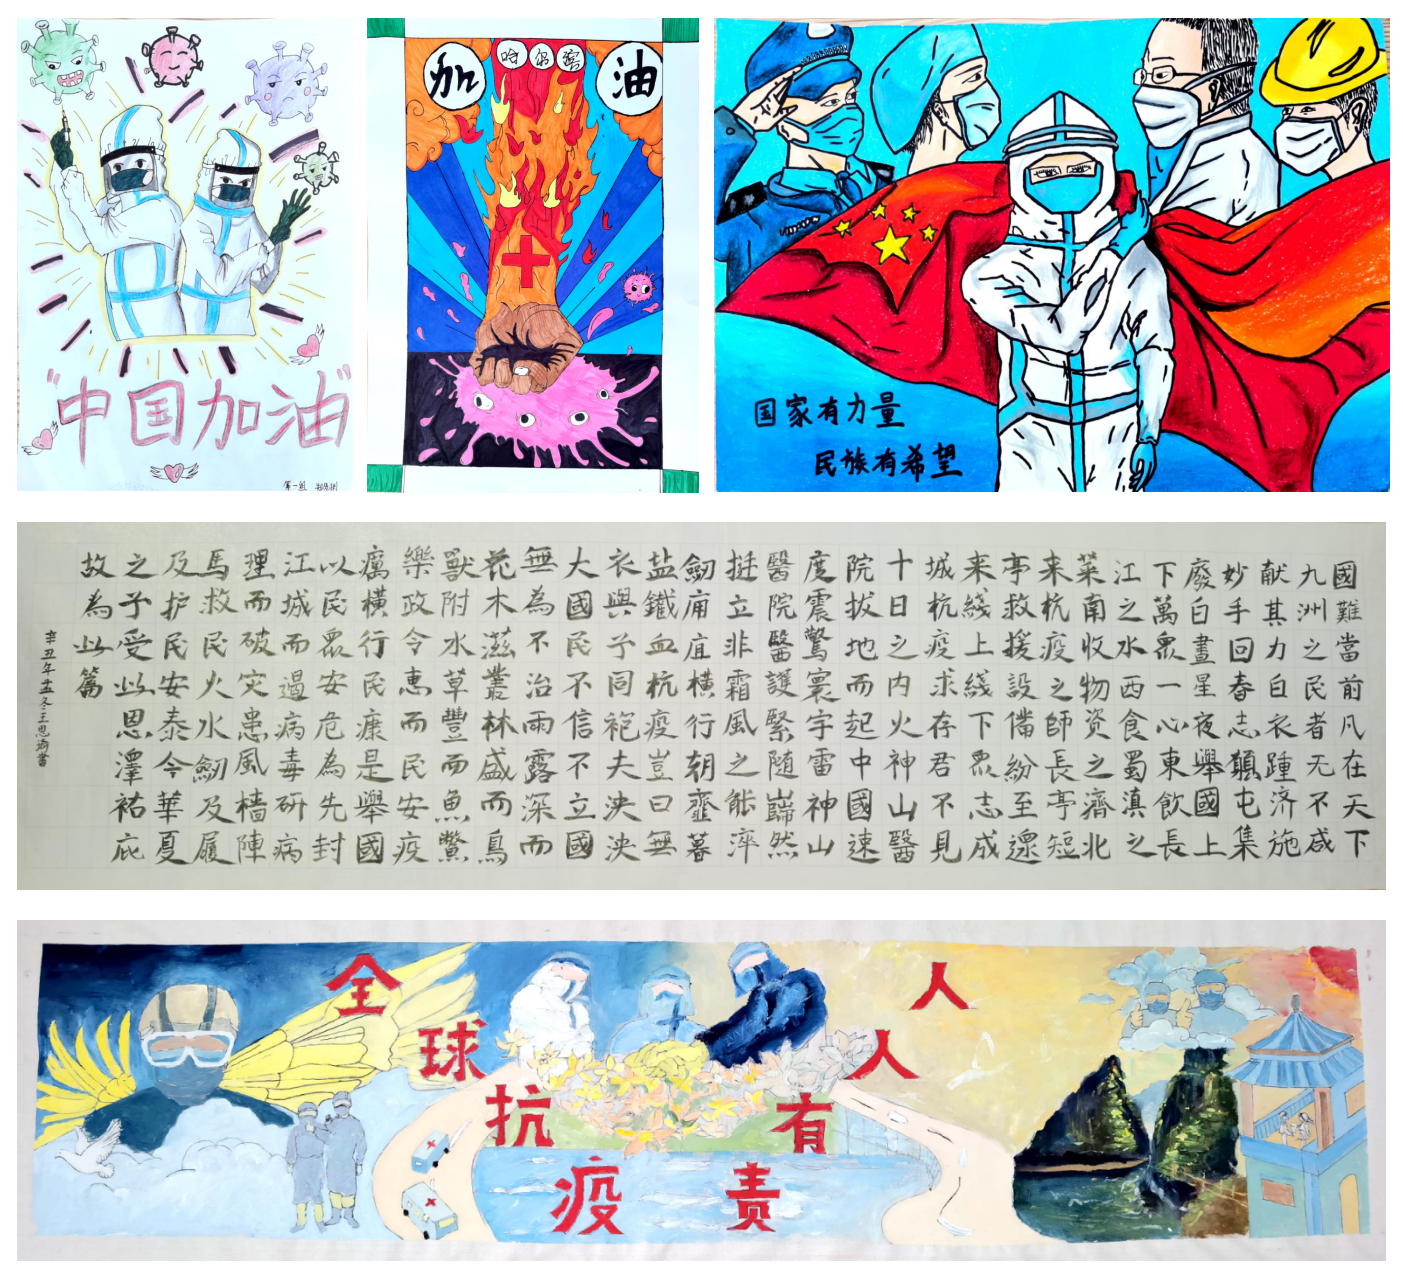 "中国加油"
第一组
哈尔滨
加油
国家有力量
民族有希望
國難當前凡在天下
九洲之民者无不咸
献其力白衣踵济施
妙手回春志顛屯集
廢白晝星夜舉國上
下萬眾一心東飲長
江之水西食蜀滇之
菜南收物资之濟北
来杭疫之師長亭短
亭救援設俻紛至遝
来綫上綫下眾志成
城杭疫求存君不見
十日之内火神山醫
院拔地而起中國速
度震驚寰宇雷神山
醫院醫護緊随巋然
挺立非霜風之能淬
劒横行朝虀暮
盐鐵血杭疫豈曰無
衣與予同袍夫泱泱
大國民不信不立國
無為不治雨露深而
花木滋叢林盛而鳥
獸附水草豐而魚鱉
樂政令惠而民安疫
癘横行民瘼是舉國
以民眾安危為先封
江城而遏病毒研病
理而破灾患風檣陣
馬救民火水劒及履
及护民安泰今華夏
之予受此恩澤祐庇
故為此篇
辛丑年孟冬王思涵書
全球抗疫
人人有责